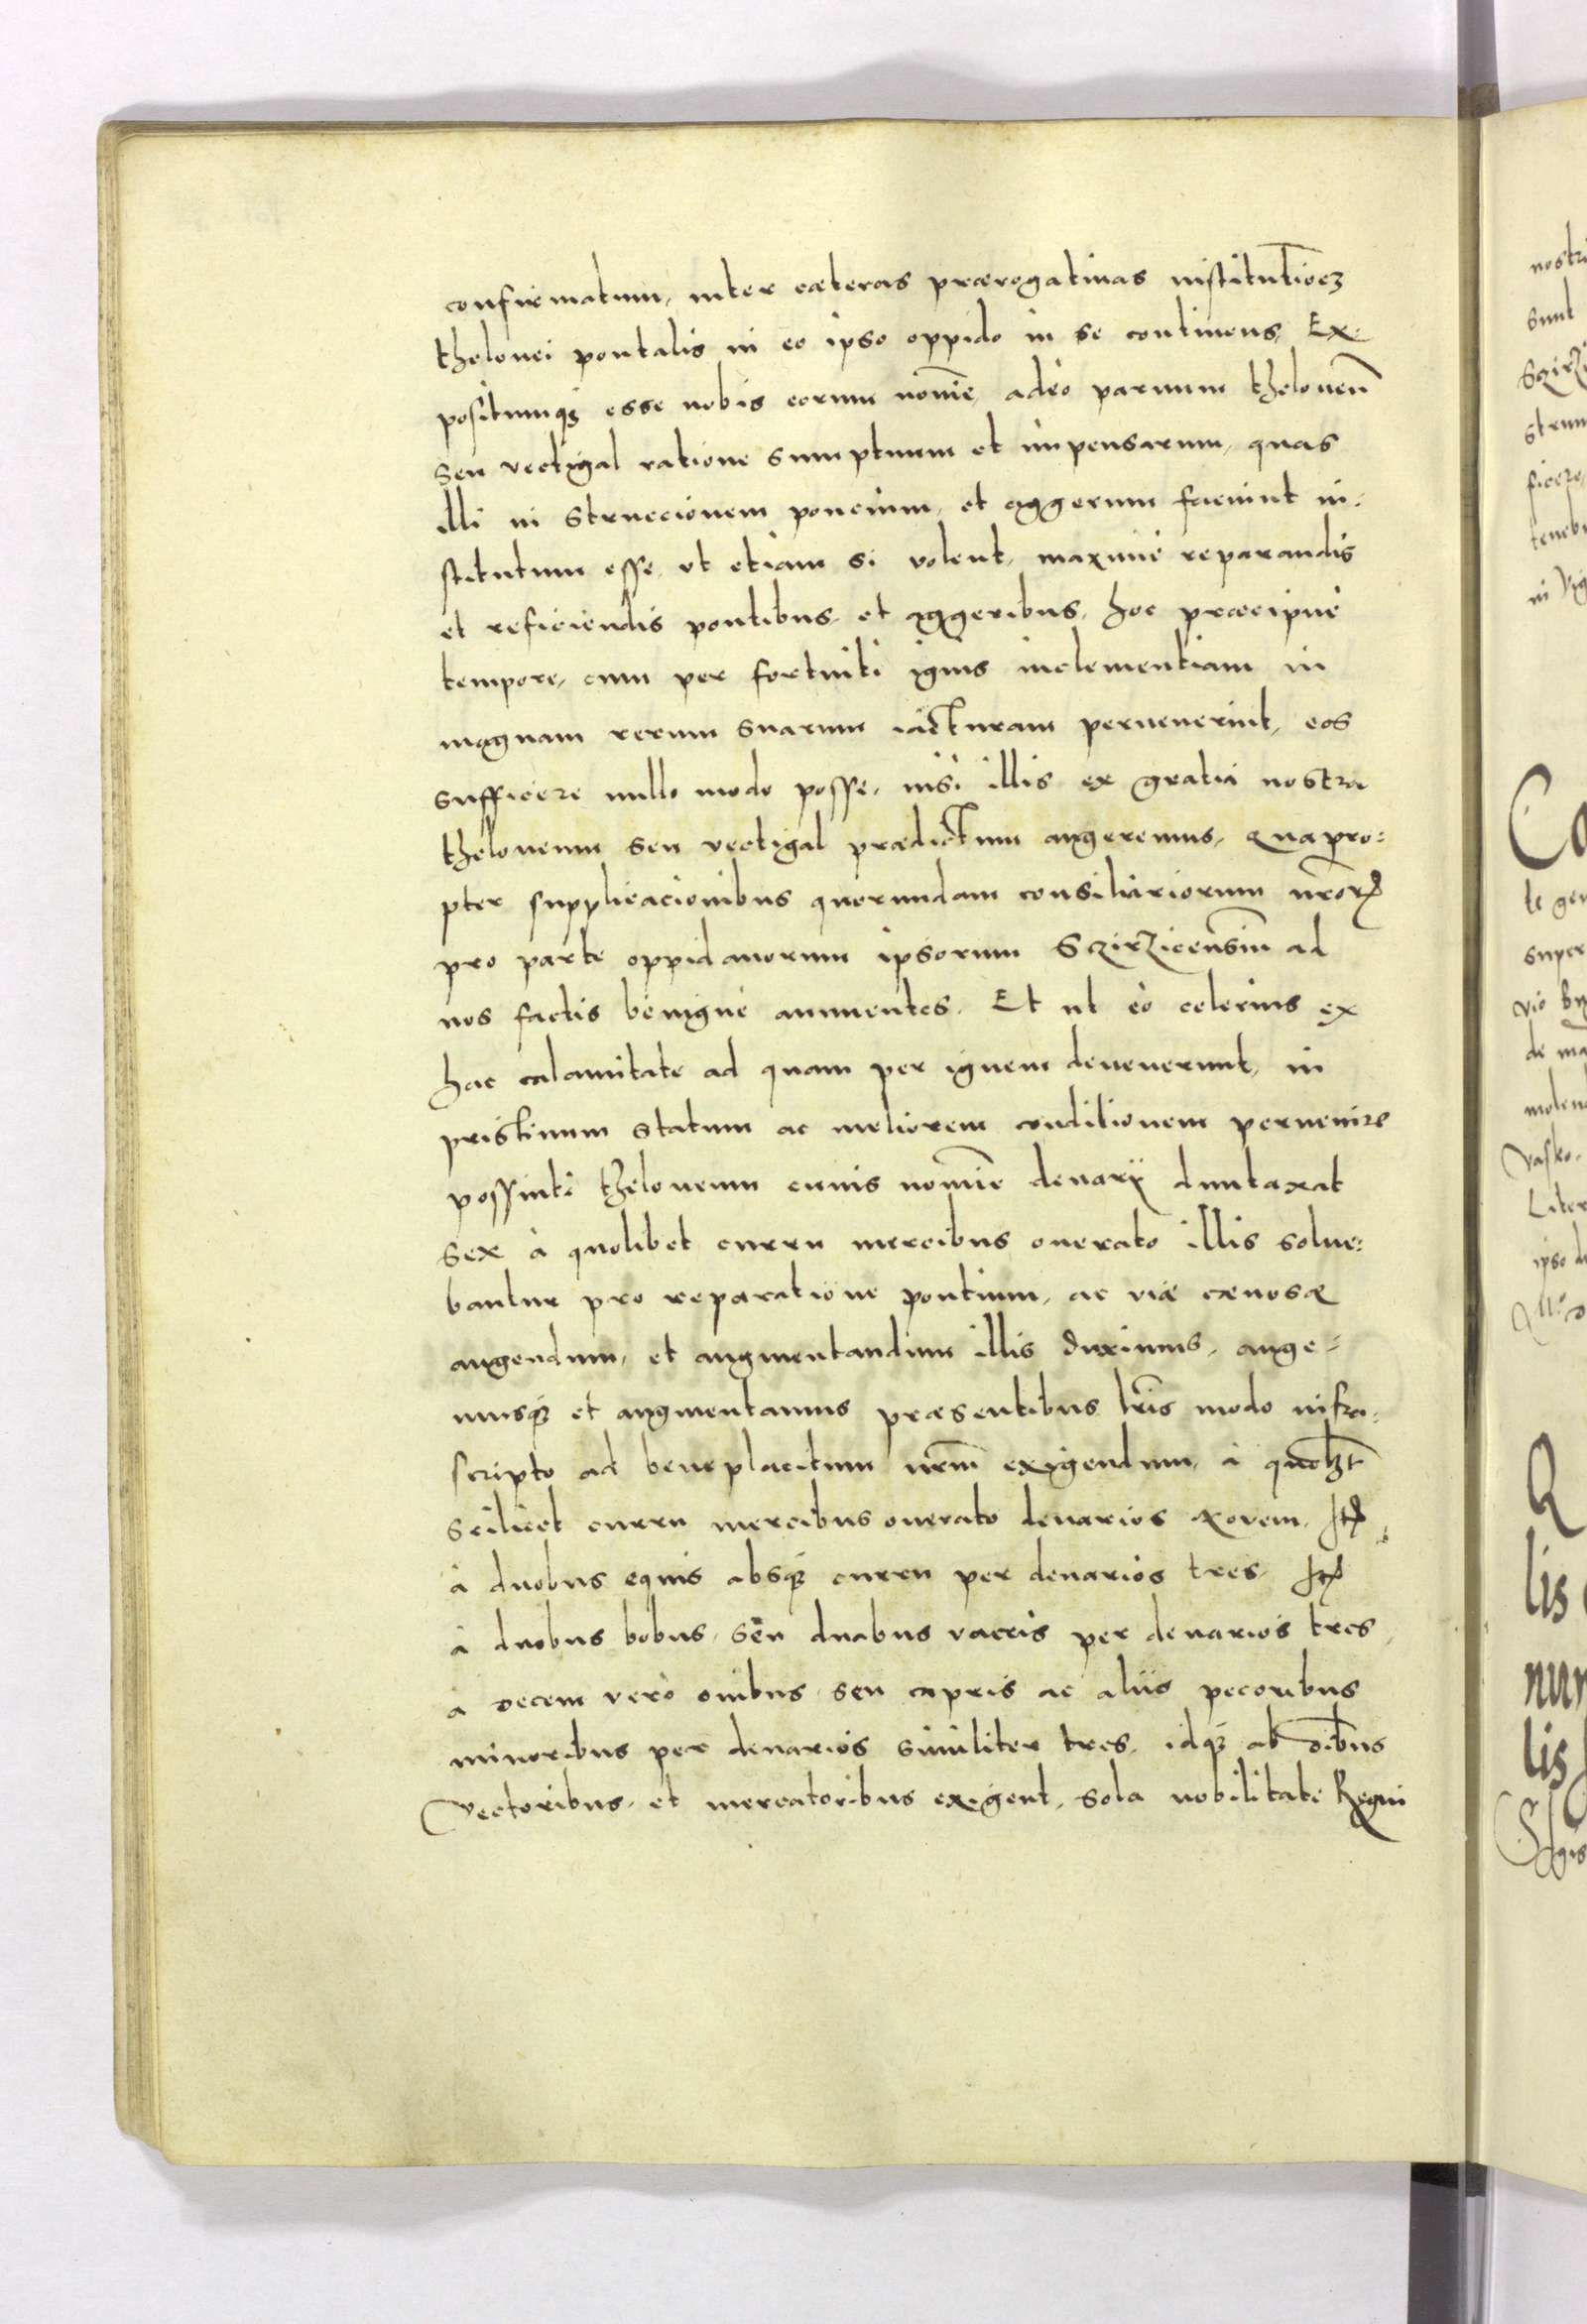 confirmatum, inter cæteras prærogatiuas institutioēꝫ
thelonei pontalis in eo ipso oppido in se continens, Ex-
positumqꝫ esse nobis eorum noīe, adeo paruum theloneū
seu vectigal ratione sumptuum et impensarum, quas
illi in struccionem poncium, et aggerum faciunt in-
stitutum esse, vt etiam si volent, maximè reparandis
et reficiendis pontibus, et aggeribus, hoc præcipuè
tempore, cum per fortuiti ignis inclementiam in
magnam rerum suarum iacturam peruenerint, eos
sufficere nullo modo posse, nisi illis ex gratia nostra
theloneum seu vectigal prædictum augeremus, Quapro:
pter supplicacionibus quorundam consiliariorum nrōꝝ
pro parte oppidanorum ipsorum Szirzicensiū ad
nos factis benignè annuentes. Et ut eò celerius ex
hac calamitate ad quam per ignem deuenerunt, in
pristinum statum ac meliorem conditionem peruenire
possint: theloneum cuius noīe denarij duntaxat
sex à quolibet curru mercibus onerato illis solue:
bantur pro reparatione pontium, ac viæ cænosæ
augendum, et augmentandum illis duximus, auge=
musqꝫ et augmentamus præsentibus lrīs modo infra:
scripto ad beneplacitum nrm̄ exigendum, à quolꝫt
scilicet curru mercibus onerato denarios nouem, Itē
à duobus equis absqꝫ curru per denarios tres, Itē
à duobus bobus, seu duabus vaccis per denarios tres,
à decem verò ouibus seu capris ac aliis pecoribus
minoribus per denarios similiter tres, idqꝫ ab oībus
vectoribus, et mercatoribus exigent, sola nobilitate Regni